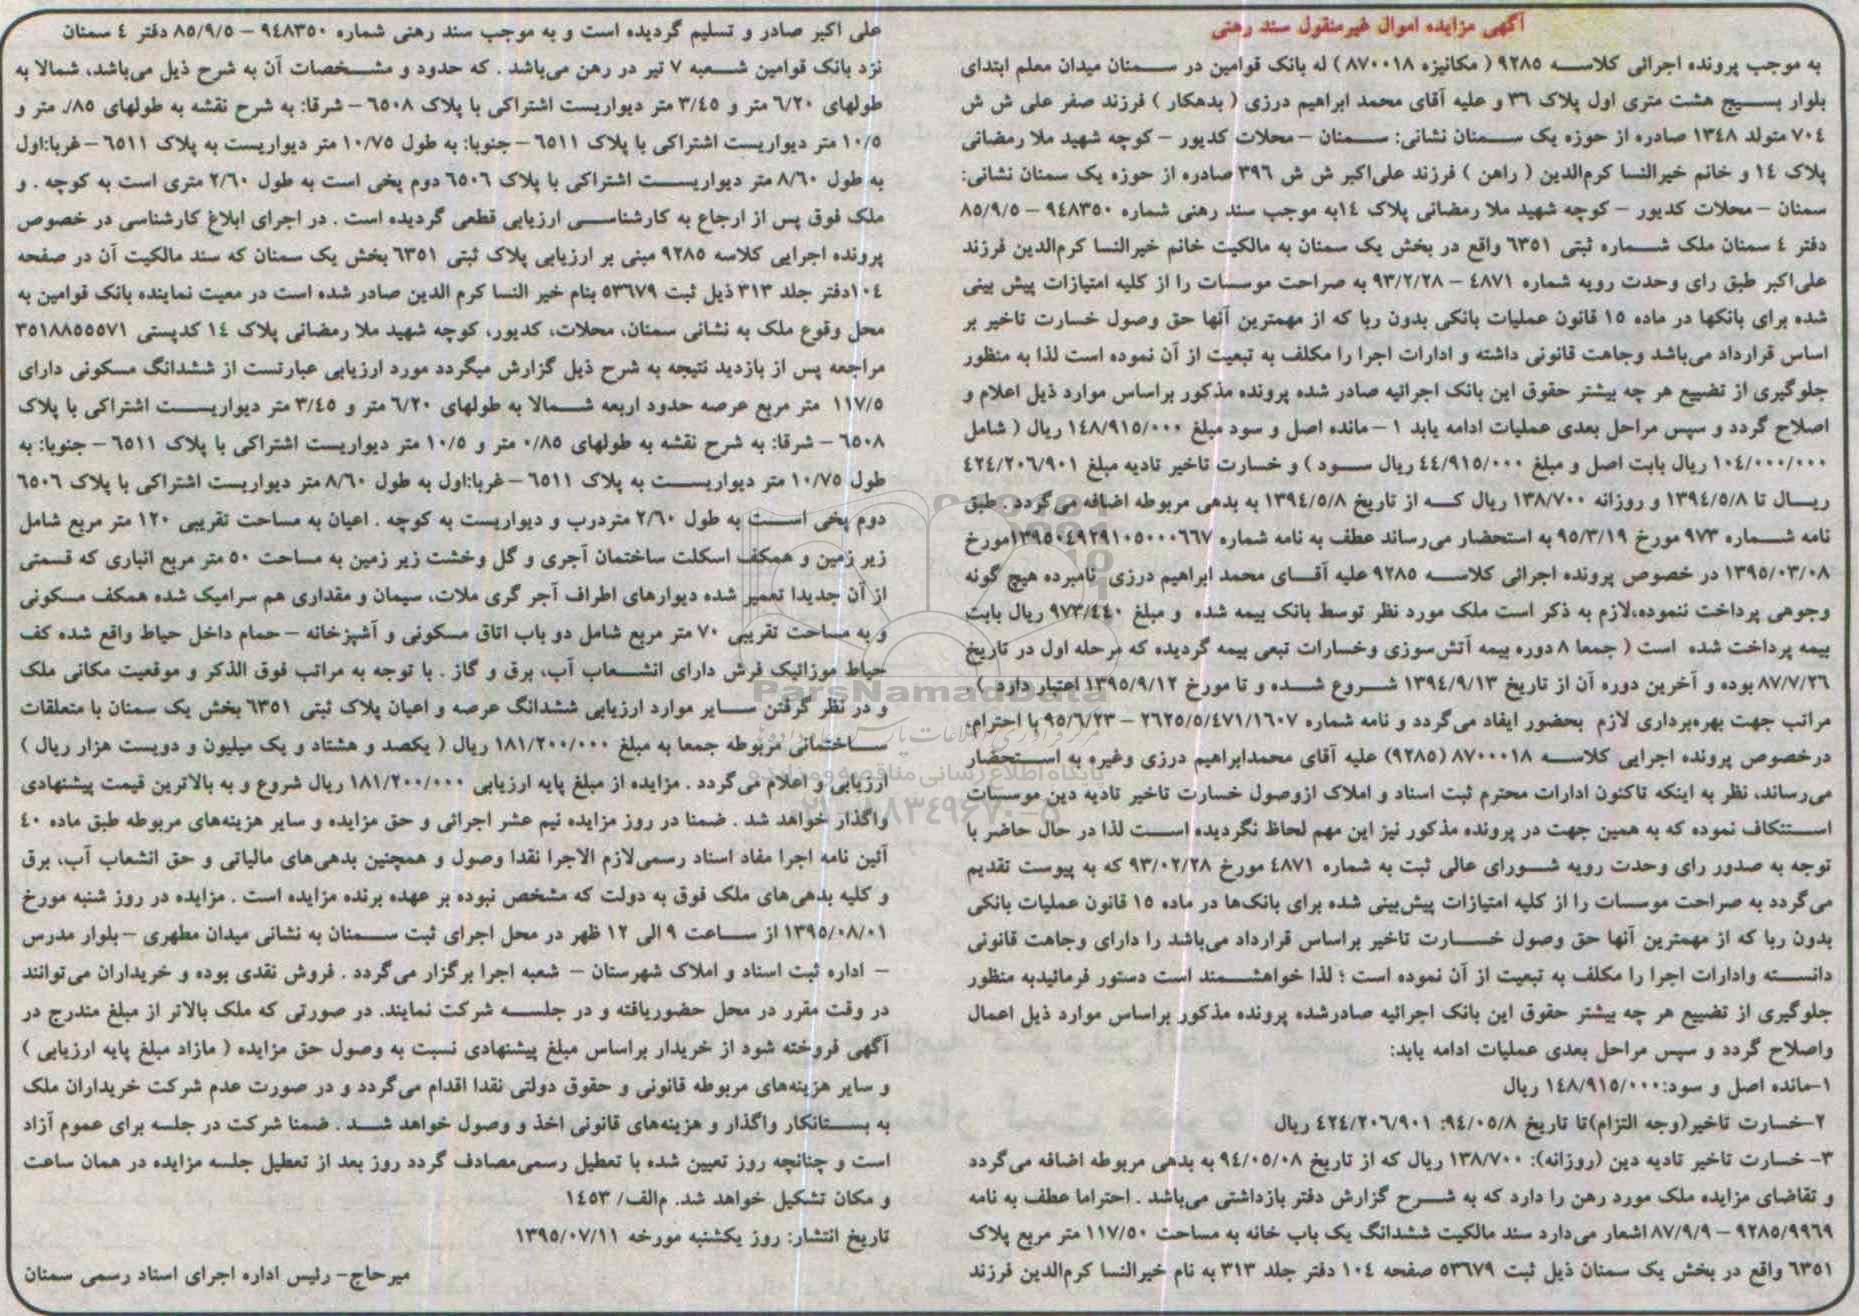 آگهی مزایده اموال غیرمنقول سند رهنی
به موجب پرونده اجرائی کلاسه ۹۲۸۵ ( مکانیزه ۸۷۰۰۱۸ ) له بانک قوامین در سمنان میدان معلم ابتدای
بلوار بسیج هشت متری اول پلاک ۳۶ و علیه آقای محمد ابراهیم درزی ( بدهکار ) فرزند صفر علی ش ش
۷۰٤ متولد ۱۳٤۸ صادره از حوزه یک سمنان نشانی: سمنان – محلات کدیور – کوچه شهید ملا رمضانی
پلاک ۱٤ و خانم خیرالنسا کرم‌الدین ( راهن ) فرزند علی‌اکبر ش ش ۳۹۶ صادره از حوزه یک سمنان نشانی:
سمنان – محلات کدیور – کوچه شهید ملا رمضانی پلاک ۱٤به موجب سند رهنی شماره ۹٤۸۳۵۰ – ۸۵/۹/۵
دفتر ٤ سمنان ملک شماره ثبتی ۶۳۵۱ واقع در بخش یک سمنان به مالکیت خانم خیرالنسا کرم‌الدین فرزند
علی‌اکبر طبق رای وحدت رویه شماره ٤۸۷۱ – ۹۳/۲/۲۸ به صراحت موسسات را از کلیه امتیازات پیش بینی
شده برای بانکها در ماده ۱۵ قانون عملیات بانکی بدون ربا که از مهمترین آنها حق وصول خسارت تاخیر بر
اساس قرارداد می‌باشد وجاهت قانونی داشته و ادارات اجرا را مکلف به تبعیت از آن نموده است لذا به منظور
جلوگیری از تضییع هر چه بیشتر حقوق این بانک اجرائیه صادر شده پرونده مذکور براساس موارد ذیل اعلام و
اصلاح گردد و سپس مراحل بعدی عملیات ادامه یابد ۱ – مانده اصل و سود مبلغ ۱٤۸/۹۱۵/۰۰۰ ریال ( شامل
۱۰٤/۰۰۰/۰۰۰ ریال بابت اصل و مبلغ ٤٤/۹۱۵/۰۰۰ ریال سود ) و خسارت تاخیر تادیه مبلغ ٤۲٤/۲۰۶/۹۰۱
ریال تا ۱۳۹٤/۵/۸ و روزانه ۱۳۸/۷۰۰ ریال که از تاریخ ۱۳۹٤/۵/۸ به بدهی مربوطه اضافه می‌گردد . طبق
نامه شماره ۹۷۳ مورخ ۹۵/۳/۱۹ به استحضار می‌رساند عطف به نامه شماره ۱۳۹۵۰٤۹۲۹۱۰۵۰۰۰۶۶۷مورخ
۱۳۹۵/۰۳/۰۸ در خصوص پرونده اجرائی کلاسه ۹۲۸۵ علیه آقای محمد ابراهیم درزی نامبرده هیچ گونه
وجوهی پرداخت ننموده،لازم به ذکر است ملک مورد نظر توسط بانک بیمه شده و مبلغ ۹۷۳/٤٤۰ ریال بابت
بیمه پرداخت شده است ( جمعا ۸ دوره بیمه آتش‌سوزی وخسارات تبعی بیمه گردیده که مرحله اول در تاریخ
۸۷/۷/۲۶ بوده و آخرین دوره آن از تاریخ ۱۳۹٤/۹/۱۳ شروع شده و تا مورخ ۱۳۹۵/۹/۱۲ اعتبار دارد ) .
مراتب جهت بهره‌برداری لازم بحضور ایفاد می‌گردد و نامه شماره ۲۶۲۵/۵/٤۷۱/۱۶۰۷ – ۹۵/۶/۲۳ با احترام،
درخصوص پرونده اجرایی کلاسه ۸۷۰۰۰۱۸ (۹۲۸۵) علیه آقای محمدابراهیم درزی وغیره به استحضار
می‌رساند، نظر به اینکه تاکنون ادارات محترم ثبت اسناد و املاک ازوصول خسارت تاخیر تادیه دین موسسات
استنکاف نموده که به همین جهت در پرونده مذکور نیز این مهم لحاظ نگردیده است لذا در حال حاضر با
توجه به صدور رای وحدت رویه شورای عالی ثبت به شماره ٤۸۷۱ مورخ ۹۳/۰۲/۲۸ که به پیوست تقدیم
می‌گردد به صراحت موسسات را از کلیه امتیازات پیش‌بینی شده برای بانک‌ها در ماده ۱۵ قانون عملیات بانکی
بدون ربا که از مهمترین آنها حق وصول خسارت تاخیر براساس قرارداد می‌باشد را دارای وجاهت قانونی
دانسته وادارات اجرا را مکلف به تبعیت از آن نموده است ؛ لذا خواهشمند است دستور فرمائیدبه منظور
جلوگیری از تضییع هر چه بیشتر حقوق این بانک اجرائیه صادرشده پرونده مذکور براساس موارد ذیل اعمال
واصلاح گردد و سپس مراحل بعدی عملیات ادامه یابد:
۱-مانده اصل و سود:۱٤۸/۹۱۵/۰۰۰ ریال
۲-خسارت تاخیر(وجه التزام)تا تاریخ ۹٤/۰۵/۸: ٤۲٤/۲۰۶/۹۰۱ ریال
۳- خسارت تاخیر تادیه دین (روزانه): ۱۳۸/۷۰۰ ریال که از تاریخ ۹٤/۰۵/۰۸ به بدهی مربوطه اضافه می‌گردد
و تقاضای مزایده ملک مورد رهن را دارد که به شرح گزارش دفتر بازداشتی می‌باشد . احتراما عطف به نامه
۹۲۸۵/۹۹۶۹ – ۸۷/۹/۹ اشعار می‌دارد سند مالکیت ششدانگ یک باب خانه به مساحت ۱۱۷/۵۰ متر مربع پلاک
۶۳۵۱ واقع در بخش یک سمنان ذیل ثبت ۵۳۶۷۹ صفحه ۱۰٤ دفتر جلد ۳۱۳ به نام خیرالنسا کرم‌الدین فرزند
علی اکبر صادر و تسلیم گردیده است و به موجب سند رهنی شماره ۹٤۸۳۵۰ – ۸۵/۹/۵ دفتر ٤ سمنان
نزد بانک قوامین شعبه ۷ تیر در رهن می‌باشد . که حدود و مشخصات آن به شرح ذیل می‌باشد، شمالا به
طولهای ۶/۲۰ متر و ۳/٤۵ متر دیواریست اشتراکی با پلاک ۶۵۰۸ – شرقا: به شرح نقشه به طولهای ۸۵/. متر و
۱۰/۵ متر دیواریست اشتراکی با پلاک ۶۵۱۱ – جنوبا: به طول ۱۰/۷۵ متر دیواریست به پلاک ۶۵۱۱ – غربا:اول
به طول ۸/۶۰ متر دیواریست اشتراکی با پلاک ۶۵۰۶ دوم پخی است به طول ۲/۶۰ متری است به کوچه . و
ملک فوق پس از ارجاع به کارشناسی ارزیابی قطعی گردیده است . در اجرای ابلاغ کارشناسی در خصوص
پرونده اجرایی کلاسه ۹۲۸۵ مبنی بر ارزیابی پلاک ثبتی ۶۳۵۱ بخش یک سمنان که سند مالکیت آن در صفحه
۱۰٤دفتر جلد ۳۱۳ ذیل ثبت ۵۳۶۷۹ بنام خیر النسا کرم الدین صادر شده است در معیت نماینده بانک قوامین به
محل وقوع ملک به نشانی سمنان، محلات، کدیور، کوچه شهید ملا رمضانی پلاک ۱٤ کدپستی ۳۵۱۸۸۵۵۵۷۱
مراجعه پس از بازدید نتیجه به شرح ذیل گزارش میگردد مورد ارزیابی عبارتست از ششدانگ مسکونی دارای
۱۱۷/۵ متر مربع عرصه حدود اربعه شمالا به طولهای ۶/۲۰ متر و ۳/٤۵ متر دیواریست اشتراکی با پلاک
۶۵۰۸ – شرقا: به شرح نقشه به طولهای ۰/۸۵ متر و ۱۰/۵ متر دیواریست اشتراکی با پلاک ۶۵۱۱ – جنوبا: به
طول ۱۰/۷۵ متر دیواریست به پلاک ۶۵۱۱ – غربا:اول به طول ۸/۶۰ متر دیواریست اشتراکی با پلاک ۶۵۰۶
دوم پخی است به طول ۲/۶۰ متردرب و دیواریست به کوچه . اعیان به مساحت تقریبی ۱۲۰ متر مربع شامل
زیر زمین و همکف اسکلت ساختمان آجری و گل وخشت زیر زمین به مساحت ۵۰ متر مربع انباری که قسمتی
از آن جدیدا تعمیر شده دیوارهای اطراف آجر گری ملات، سیمان و مقداری هم سرامیک شده همکف مسکونی
و به مساحت تقریبی ۷۰ متر مربع شامل دو باب اتاق مسکونی و آشپزخانه – حمام داخل حیاط واقع شده کف
حیاط موزائیک فرش دارای انشعاب آب، برق و گاز . با توجه به مراتب فوق الذکر و موقعیت مکانی ملک
و در نظر گرفتن سایر موارد ارزیابی ششدانگ عرصه و اعیان پلاک ثبتی ۶۳۵۱ بخش یک سمنان با متعلقات
ساختمانی مربوطه جمعا به مبلغ ۱۸۱/۲۰۰/۰۰۰ ریال ( یکصد و هشتاد و یک میلیون و دویست هزار ریال )
ارزیابی و اعلام می‌گردد . مزایده از مبلغ پایه ارزیابی ۱۸۱/۲۰۰/۰۰۰ ریال شروع و به بالاترین قیمت پیشنهادی
واگذار خواهد شد . ضمنا در روز مزایده نیم عشر اجرائی و حق مزایده و سایر هزینه‌های مربوطه طبق ماده ٤۰
آئین نامه اجرا مفاد اسناد رسمی‌لازم الاجرا نقدا وصول و همچنین بدهی‌های مالیاتی و حق انشعاب آب، برق
و کلیه بدهی‌های ملک فوق به دولت که مشخص نبوده بر عهده برنده مزایده است . مزایده در روز شنبه مورخ
۱۳۹۵/۰۸/۰۱ از ساعت ۹ الی ۱۲ ظهر در محل اجرای ثبت سمنان به نشانی میدان مطهری – بلوار مدرس
– اداره ثبت اسناد و املاک شهرستان – شعبه اجرا برگزار می‌گردد . فروش نقدی بوده و خریداران می‌توانند
در وقت مقرر در محل حضوریافته و در جلسه شرکت نمایند. در صورتی که ملک بالاتر از مبلغ مندرج در
آگهی فروخته شود از خریدار براساس مبلغ پیشنهادی نسبت به وصول حق مزایده ( مازاد مبلغ پایه ارزیابی )
و سایر هزینه‌های مربوطه قانونی و حقوق دولتی نقدا اقدام می‌گردد و در صورت عدم شرکت خریداران ملک
به بستانکار واگذار و هزینه‌های قانونی اخذ و وصول خواهد شد . ضمنا شرکت در جلسه برای عموم آزاد
است و چنانچه روز تعیین شده با تعطیل رسمی‌مصادف گردد روز بعد از تعطیل جلسه مزایده در همان ساعت
و مکان تشکیل خواهد شد. م‌الف/ ۱٤۵۳
تاریخ انتشار: روز یکشنبه مورخه ۱۳۹۵/۰۷/۱۱
میرحاج- رئیس اداره اجرای اسناد رسمی سمنان
ParsNamadData
پایگاه اطلاع رسانی مناقصه و مزایده
۰۲۱-۸۸۳٤۹۶۷۰-۵